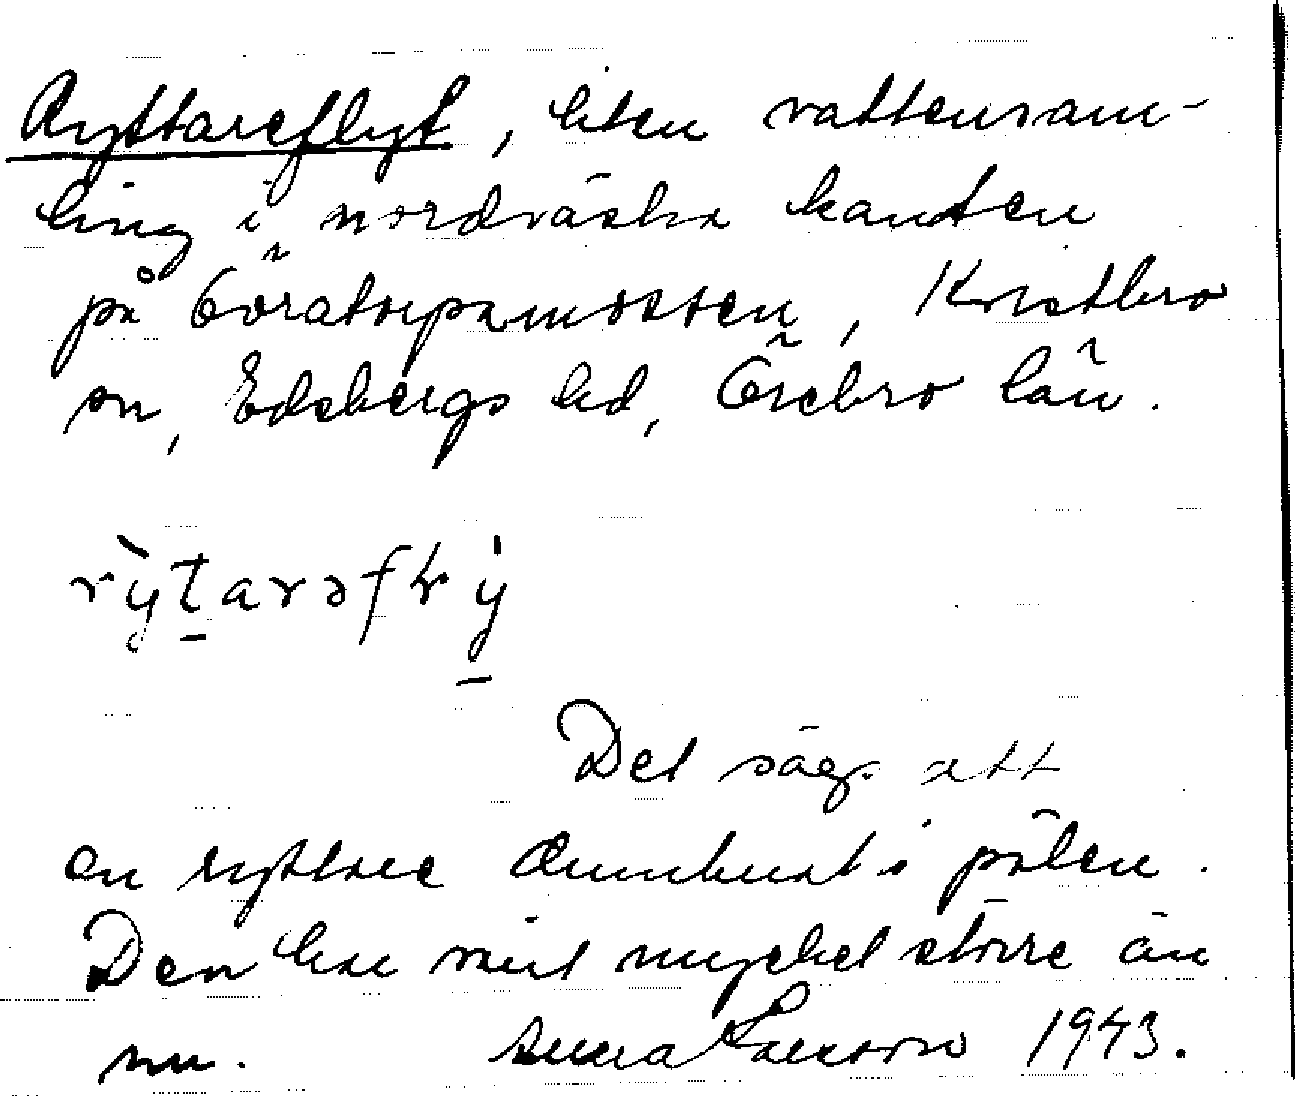 Ryttareflyt, liten vattensam-
ling i nordvästra kanten
på Göratorpamossen, Kvistbro
sn, Edsbergs hd, Örebro län.
Det sägs att
en ryttare drunknat i pölen.
Den har varit mycket större än
nu. Anna Larsson 1943.